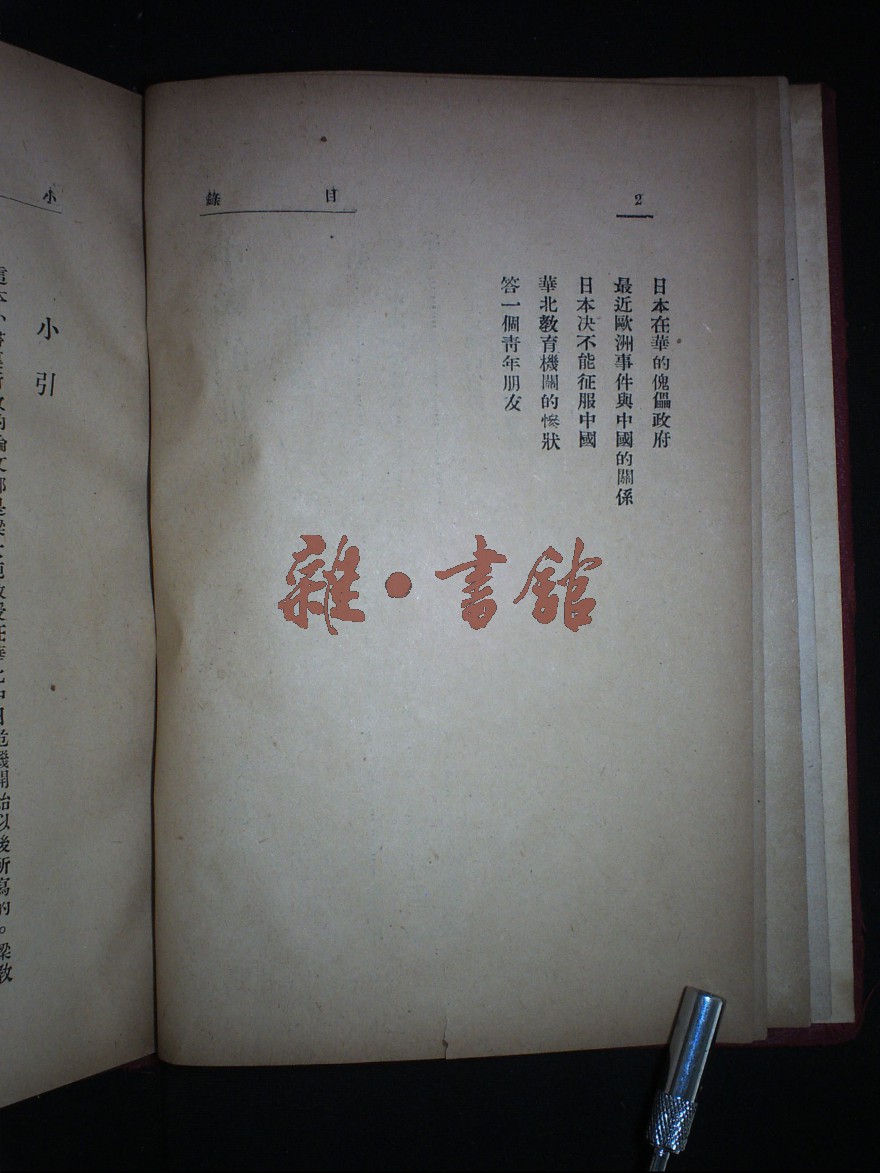 目錄
2
日本在華的傀儡政府
最近歐洲事件與中國的關係
日本决不能征服中國
華北教育機關的慘狀
答一個青年朋友
雜·書舘
小
小引